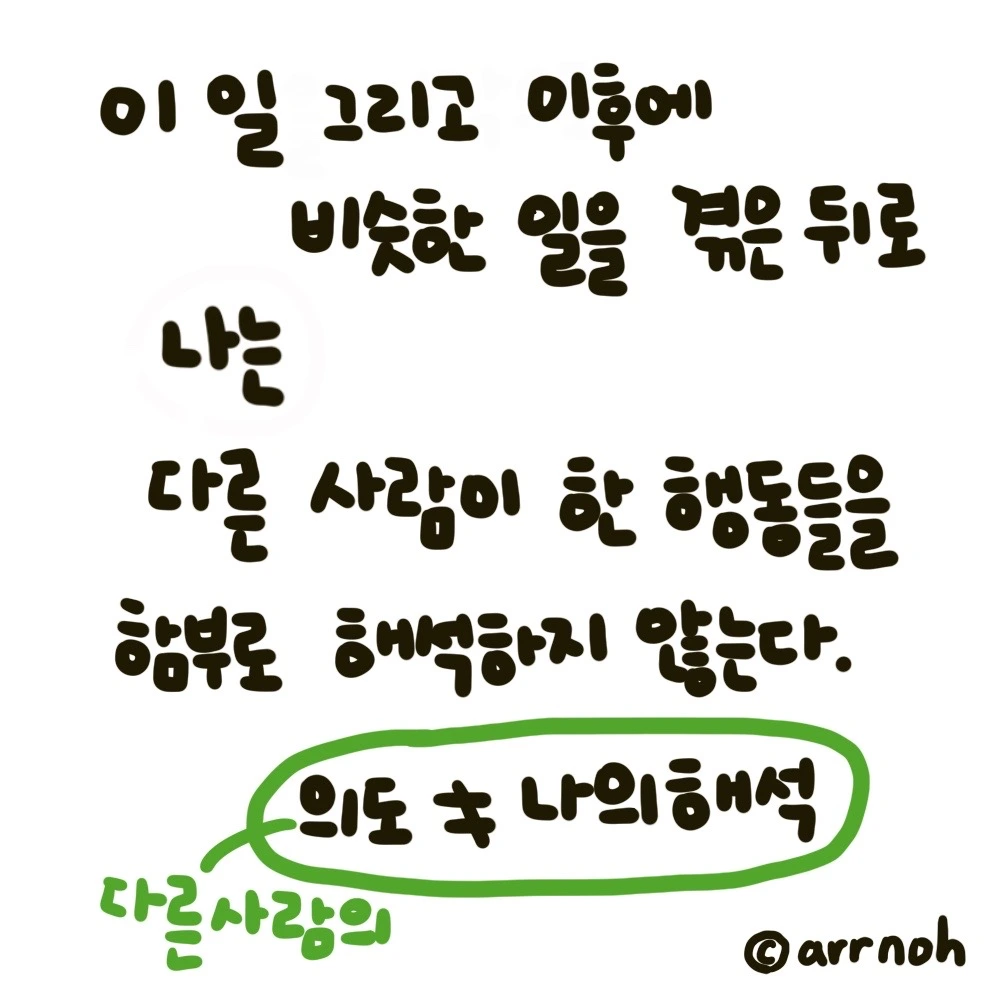 이 일 그리고 이후에
비슷한 일을 겪은 뒤로
나는
다른 사람이 한 행동들을
함부로 해석하지 않는다.
의도 ≠ 나의해석
다른사람의
©arrnoh